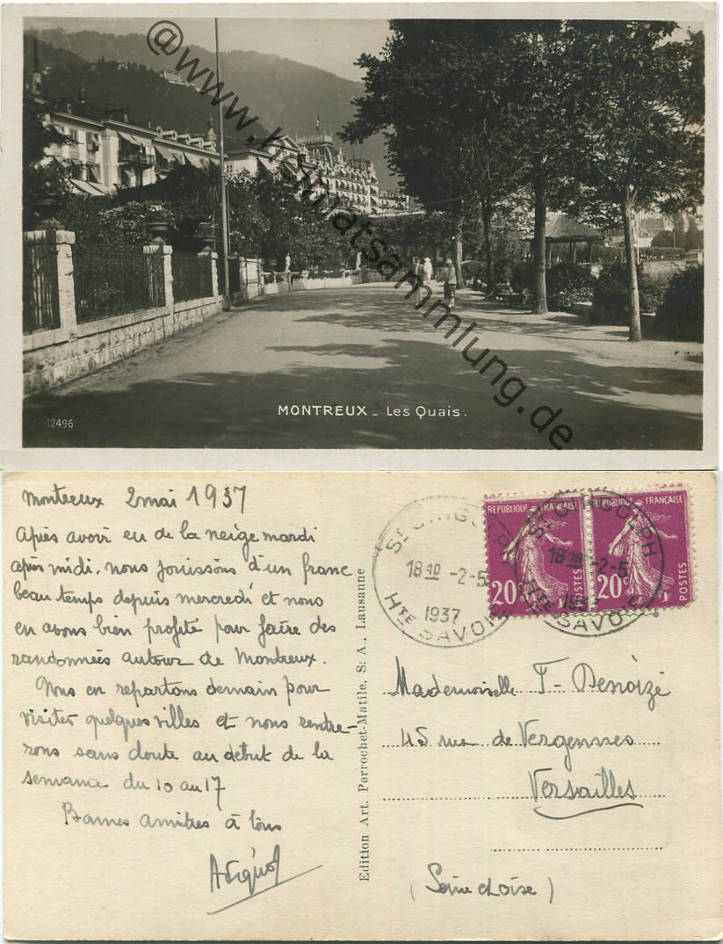 @www.heimatsammlung.de
12496
MONTREUX - Les Quais.
Montreux 2 mai 1937
Après avoir eu de la neige mardi
après midi, nous jouissons d'un franc
beau temps depuis mercredi et nous
en avons bien profité pour faire des
randonnées autour de Montreux.
Nous en repartons demain pour
visiter quelques villes et nous rentre-
rons sans doute au début de la
semaine du 10 au 17
Bonnes amitiés à tous
Edition Art. Perrochet-Matile, S. A., Lausanne
ST GINGOLPH
18 10 -2-5
1937
HTE SAVOIE
REPUBLIQUE FRANÇAISE
20c
POSTES
REPUBLIQUE FRANÇAISE
20c
POSTES
ST GINGOLPH
18 10 -2-5
1937
HTE SAVOIE
Mademoiselle T. Denoizé
45 rue de Vergennes
Versailles
(Seine et Oise)